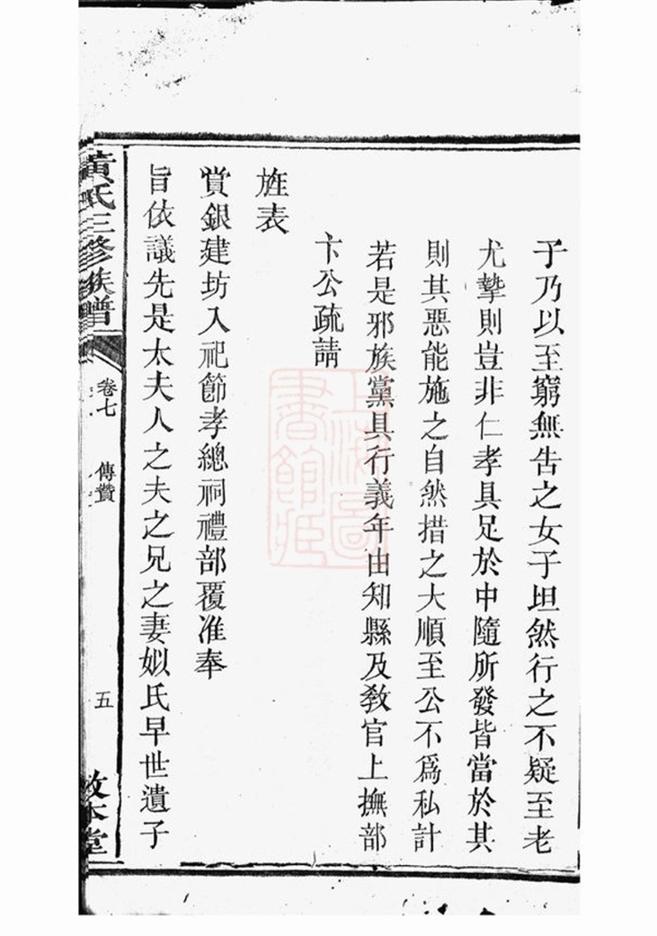 于乃以至窮無告之女子坦然行之不疑至老
尤摯則豈非仁孝具足於中隨所發皆當於其
則其惡能施之自然措之大順至公不爲私計
若是邪族黨具行義年由知縣及敎官上撫部
卞公疏請
旌表
賞銀建坊入祀節孝總祠禮部覆准奉
旨依議先是太夫人之夫之兄之妻姒氏早世遺子
黃氏三修族譜
卷七
傳贊
五
敦本堂
上海圖書館藏